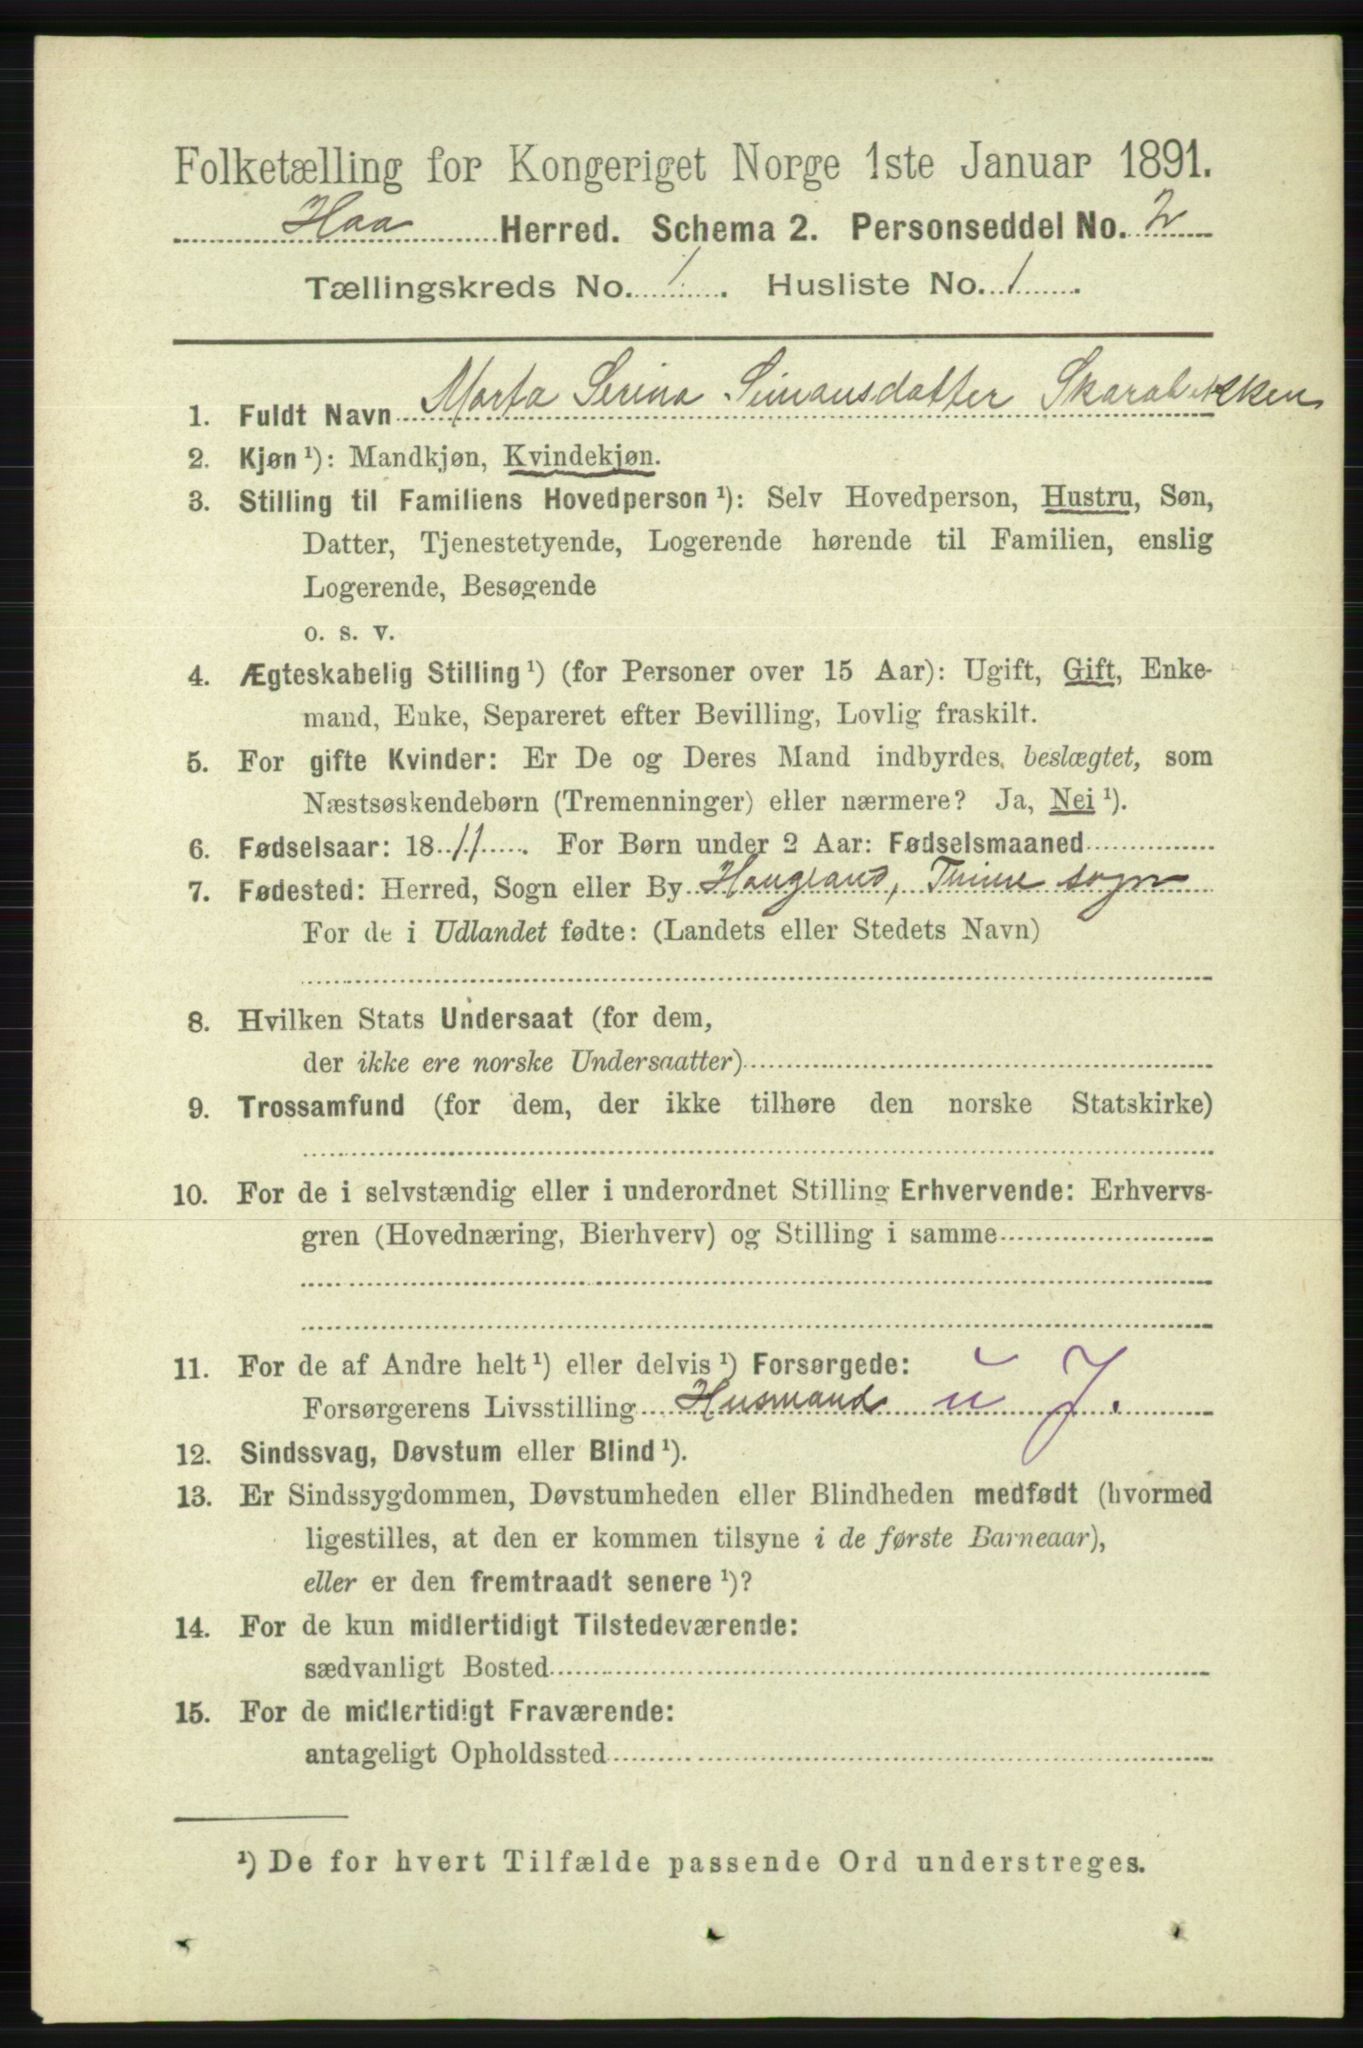 Folketælling for Kongeriget Norge 1ste Januar 1891.
Haa Herred. Schema 2. Personseddel No. 2
Tællingskreds No. 1. Husliste No. 1.
1. Fuldt Navn Marta Serina Simonsdatter Skarabekken
2. Kjøn ¹): Mandkjøn, Kvindekjøn.
3. Stilling til Familiens Hovedperson ¹): Selv Hovedperson, Hustru, Søn,
Datter, Tjenestetyende, Logerende hørende til Familien, enslig
Logerende, Besøgende
o. s. v.
4. Ægteskabelig Stilling ¹) (for Personer over 15 Aar): Ugift, Gift, Enke-
mand, Enke, Separeret efter Bevilling, Lovlig fraskilt.
5. For gifte Kvinder: Er De og Deres Mand indbyrdes beslægtet, som
Næstsøskendebørn (Tremenninger) eller nærmere? Ja, Nei ¹).
6. Fødselsaar: 1811. For Børn under 2 Aar: Fødselsmaaned
7. Fødested: Herred, Sogn eller By Haugland, Thime sogn
For de i Udlandet fødte: (Landets eller Stedets Navn)
8. Hvilken Stats Undersaat (for dem,
der ikke ere norske Undersaatter)
9. Trossamfund (for dem, der ikke tilhøre den norske Statskirke)
10. For de i selvstændig eller i underordnet Stilling Erhvervende: Erhvervs-
gren (Hovednæring, Bierhverv) og Stilling i samme
11. For de af Andre helt ¹) eller delvis ¹) Forsørgede:
Forsørgerens Livsstilling Husmand u J.
12. Sindssvag, Døvstum eller Blind ¹).
13. Er Sindssygdommen, Døvstumheden eller Blindheden medfødt (hvormed
ligestilles, at den er kommen tilsyne i de første Barneaar),
eller er den fremtraadt senere ¹)?
14. For de kun midlertidigt Tilstedeværende:
sædvanligt Bosted
15. For de midlertidigt Fraværende:
antageligt Opholdssted
¹) De for hvert Tilfælde passende Ord understreges.